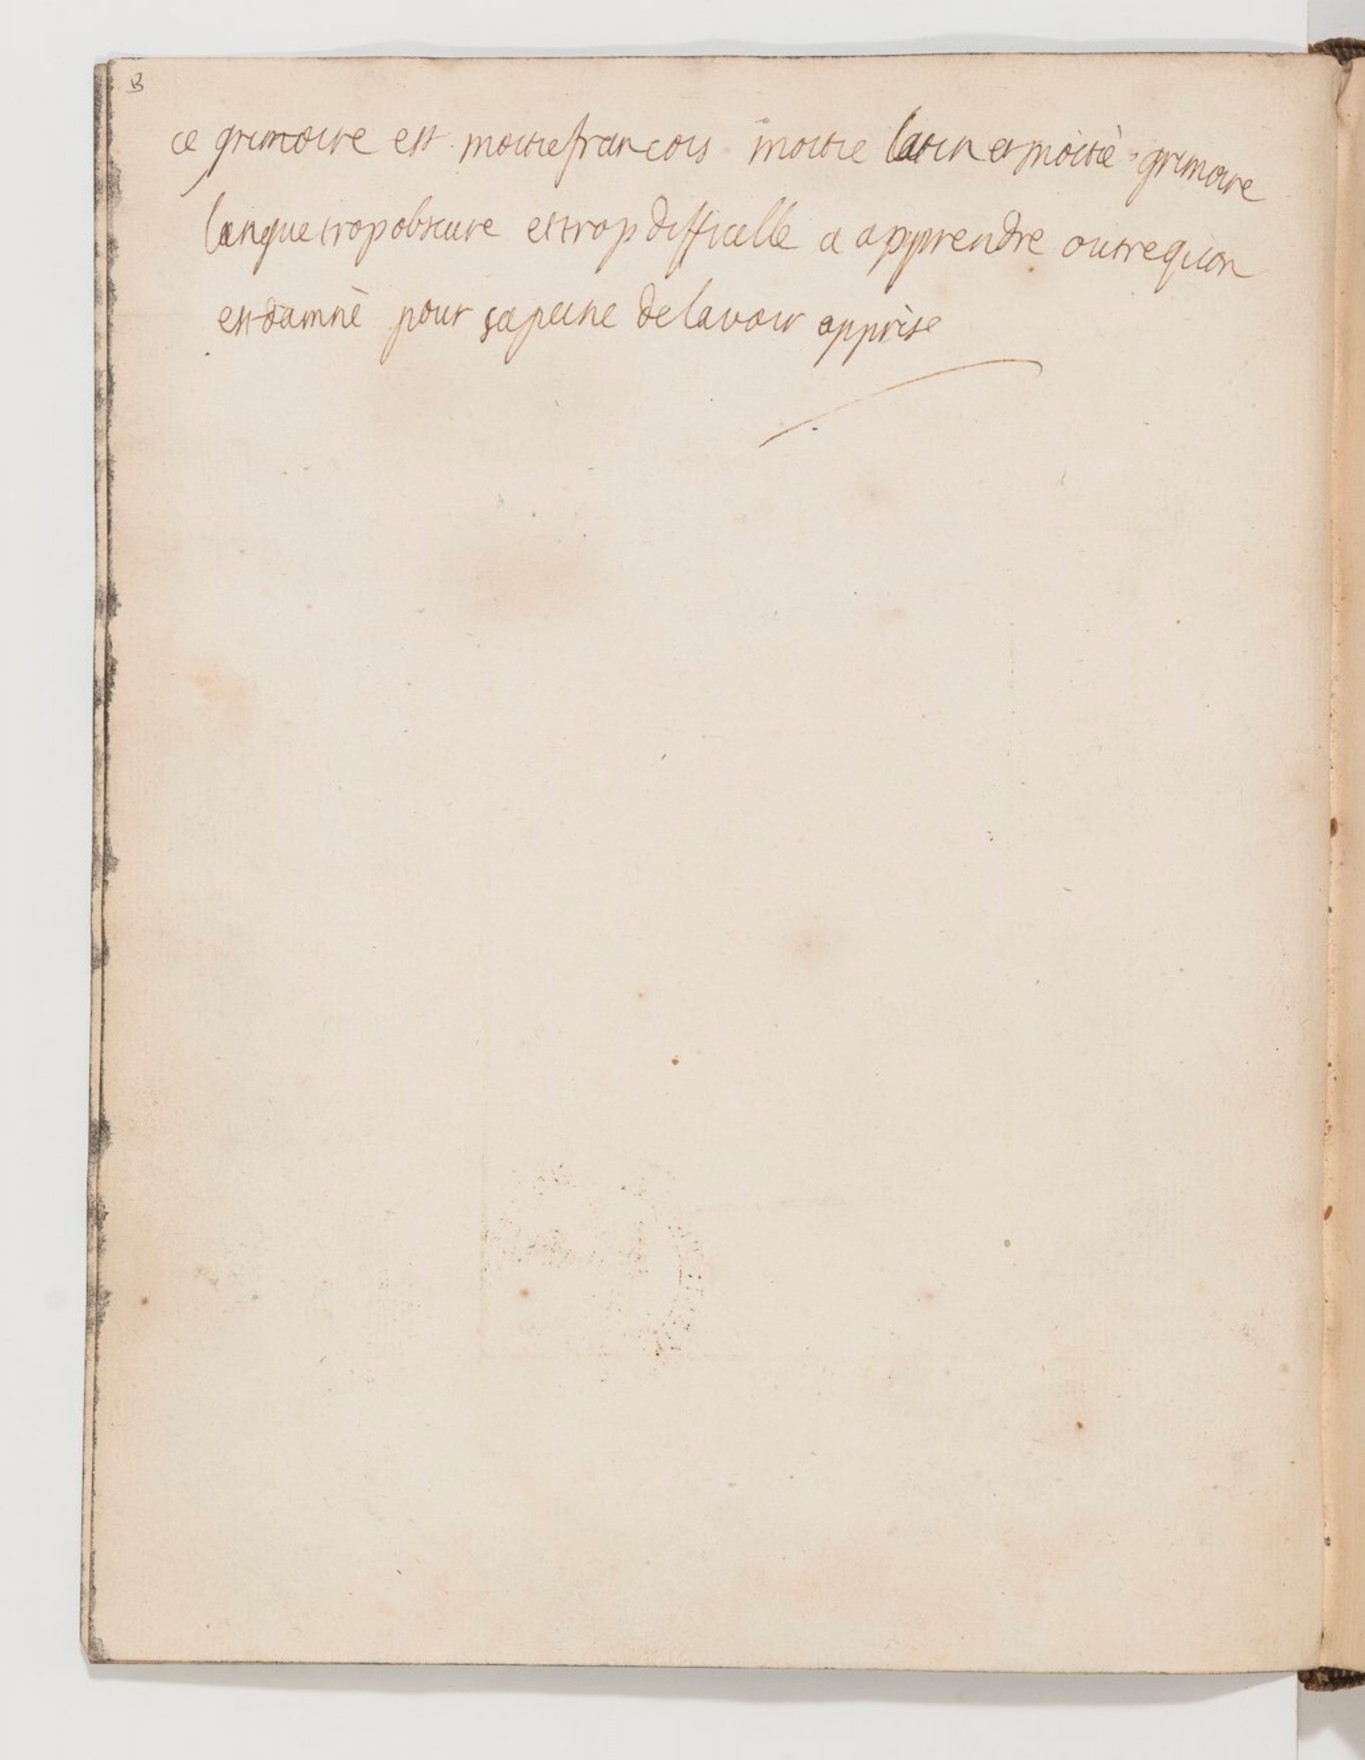 B
ce grimoire est moitie francois moitie latin et moitiè grimoire
langue trop obscure et trop difficille a apprendre outre quon
est damnè pour sa peine de lavoir apprise